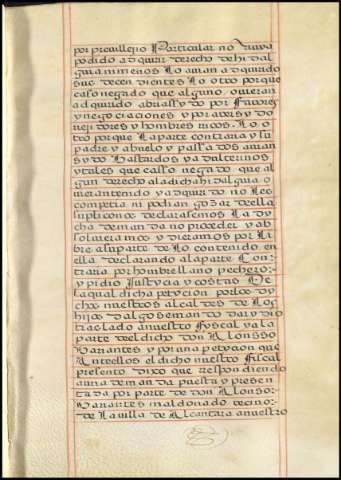 por previllejio Particular no avia
podido adquirir derecho de hidal
guia ni menos Lo avian adquirido
sus decendientes Lo otro porque
caso negado que alguno ovieran
adquirido abria sydo por Favores
y negociaciones y por aver sydo
rejidores y hombres ricos. Lo o
tro porque La parte contraria y su
padre y abuelo y passados avian
sydo Bastardos y adulterinos
y tales que casso negado que al
gun derecho a la dicha hidalguia o
viera
tenido y adquirido no Les
competia ni podian gozar della
suplico nos declarasemos La dy
cha demanda no proceder y ab
solvieramos y dieramos por Li
bre a su parte de Lo contenido en
ella declarando a la parte Con
traria por hombre llano pechero:
y pidio Justycia y costas De
la qual dicha petycion por los dy
chos nuestros alcaldes de Los
hijos dalgo se mando dar y dio
traslado a nuestro Fiscal y a la
parte del dicho don Alonsso
Barantes y por una petycion que
Ante ellos el dicho nuestro fiscal
presento dixo que respondiendo
a una demanda puesta y presen
tada por parte de don Alonso:
Barantes maldonado vecino:
de La villa de Alcantara a nuestro